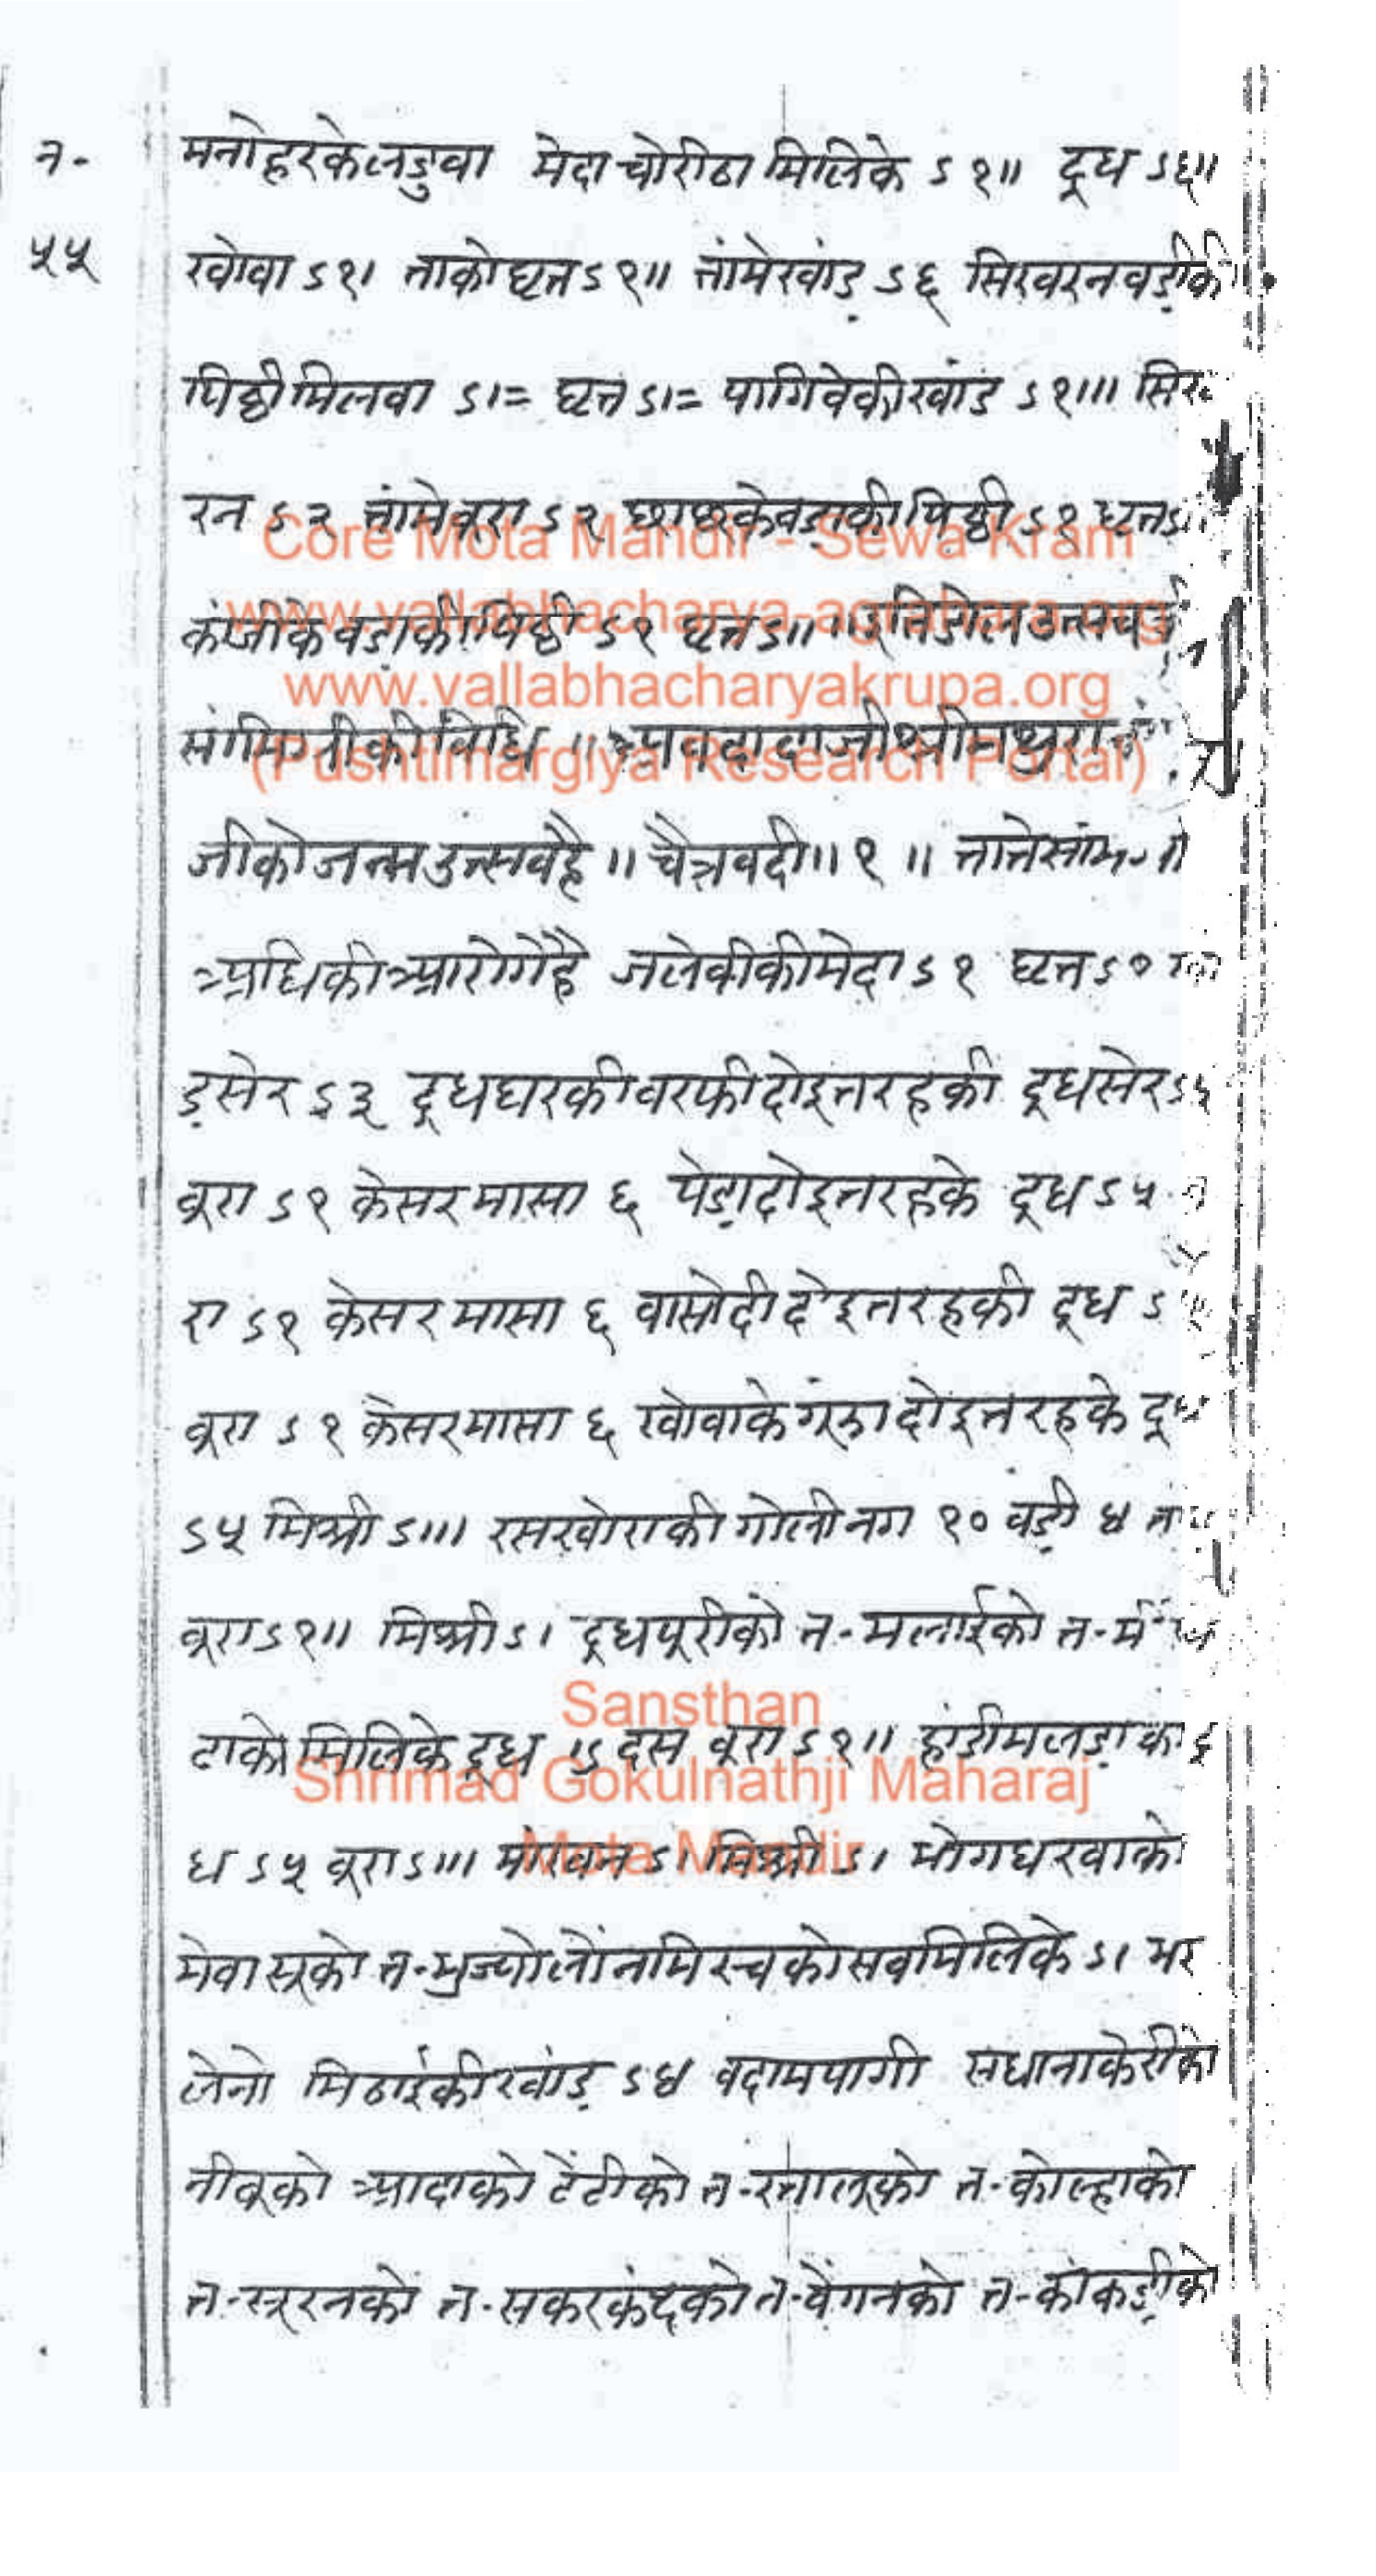 न-
५५
मनोहरकेलडुवा मेदा चोरीठा मिलिके ऽ१॥ दूध ऽ६॥
खोवा ऽ१। ताकोघृत ऽ१॥ तांमेखांड़ ऽ६ सिखरनवड़ीकी
पिठ्ठीमिलवा ऽ।= घृत ऽ।= पागिवेकीखांड ऽ१॥। सिख
रन ऽ२ तांमेबूरा ऽ२ छाछकेवड़ाकीपिठ्ठी ऽ१ घृत
कांजीकेवडाकीपिठ्ठी ऽ१ घृत ऽ॥ ॥इतिडोलउत्सव
सांमिग्रीकीविधि ॥
जीकोजन्मउत्सवहै॥ चैत्रवदी॥१॥ ताते
अधिकीआरोगेहै जलेबीकीमेदा ऽ१ घृत ऽ१
ड़सेर ऽ३ दूधघरकीबरफीदोइतरहकी दूधसेर ऽ५
बूरा ऽ१ केसरमासा ६ पेड़ादोइतरहके दूध ऽ५
रा ऽ१ केसरमासा ६ वासोदीदोइतरहकी दूध
बूरा ऽ१ केसरमासा ६ खोवाकेगूंझादोइतरहके दूध
ऽ५ मिश्री ऽ॥। रसखोराकीगोलीनग १० वड़ी ४
बूरा ऽ१॥ मिश्री ऽ। दूधपूरीको त-मलाईको त-
टाकोमिलिकेदूध ऽ दस बूरा ऽ१॥ हांडीमलड़ाका दू
ध ऽ५ बूरा ऽ॥। माखन ऽ। मिश्री ऽ। भोगधरवाको
मेवासूको त-भुज्योलोंनमिरचकोसबमिलिके ऽ। भर
लेनो मिठाईकीखांड़ ऽ४ बदामपागी सधानाकेरीको
नीबूको आदाको टेंटीको त-रतालूको त-कोल्हाको
त-सूरनको त-सकरकंदको त-वेंगनको त-कांकड़ीको
Core Mota Mandir - Sewa Kram
www.vallabhacharya-agrahara.org
www.vallabhacharyakrupa.org
(Pushtimargiya Research Portal)
Sansthan
Shrimad Gokulnathji Maharaj
Mota Mandir